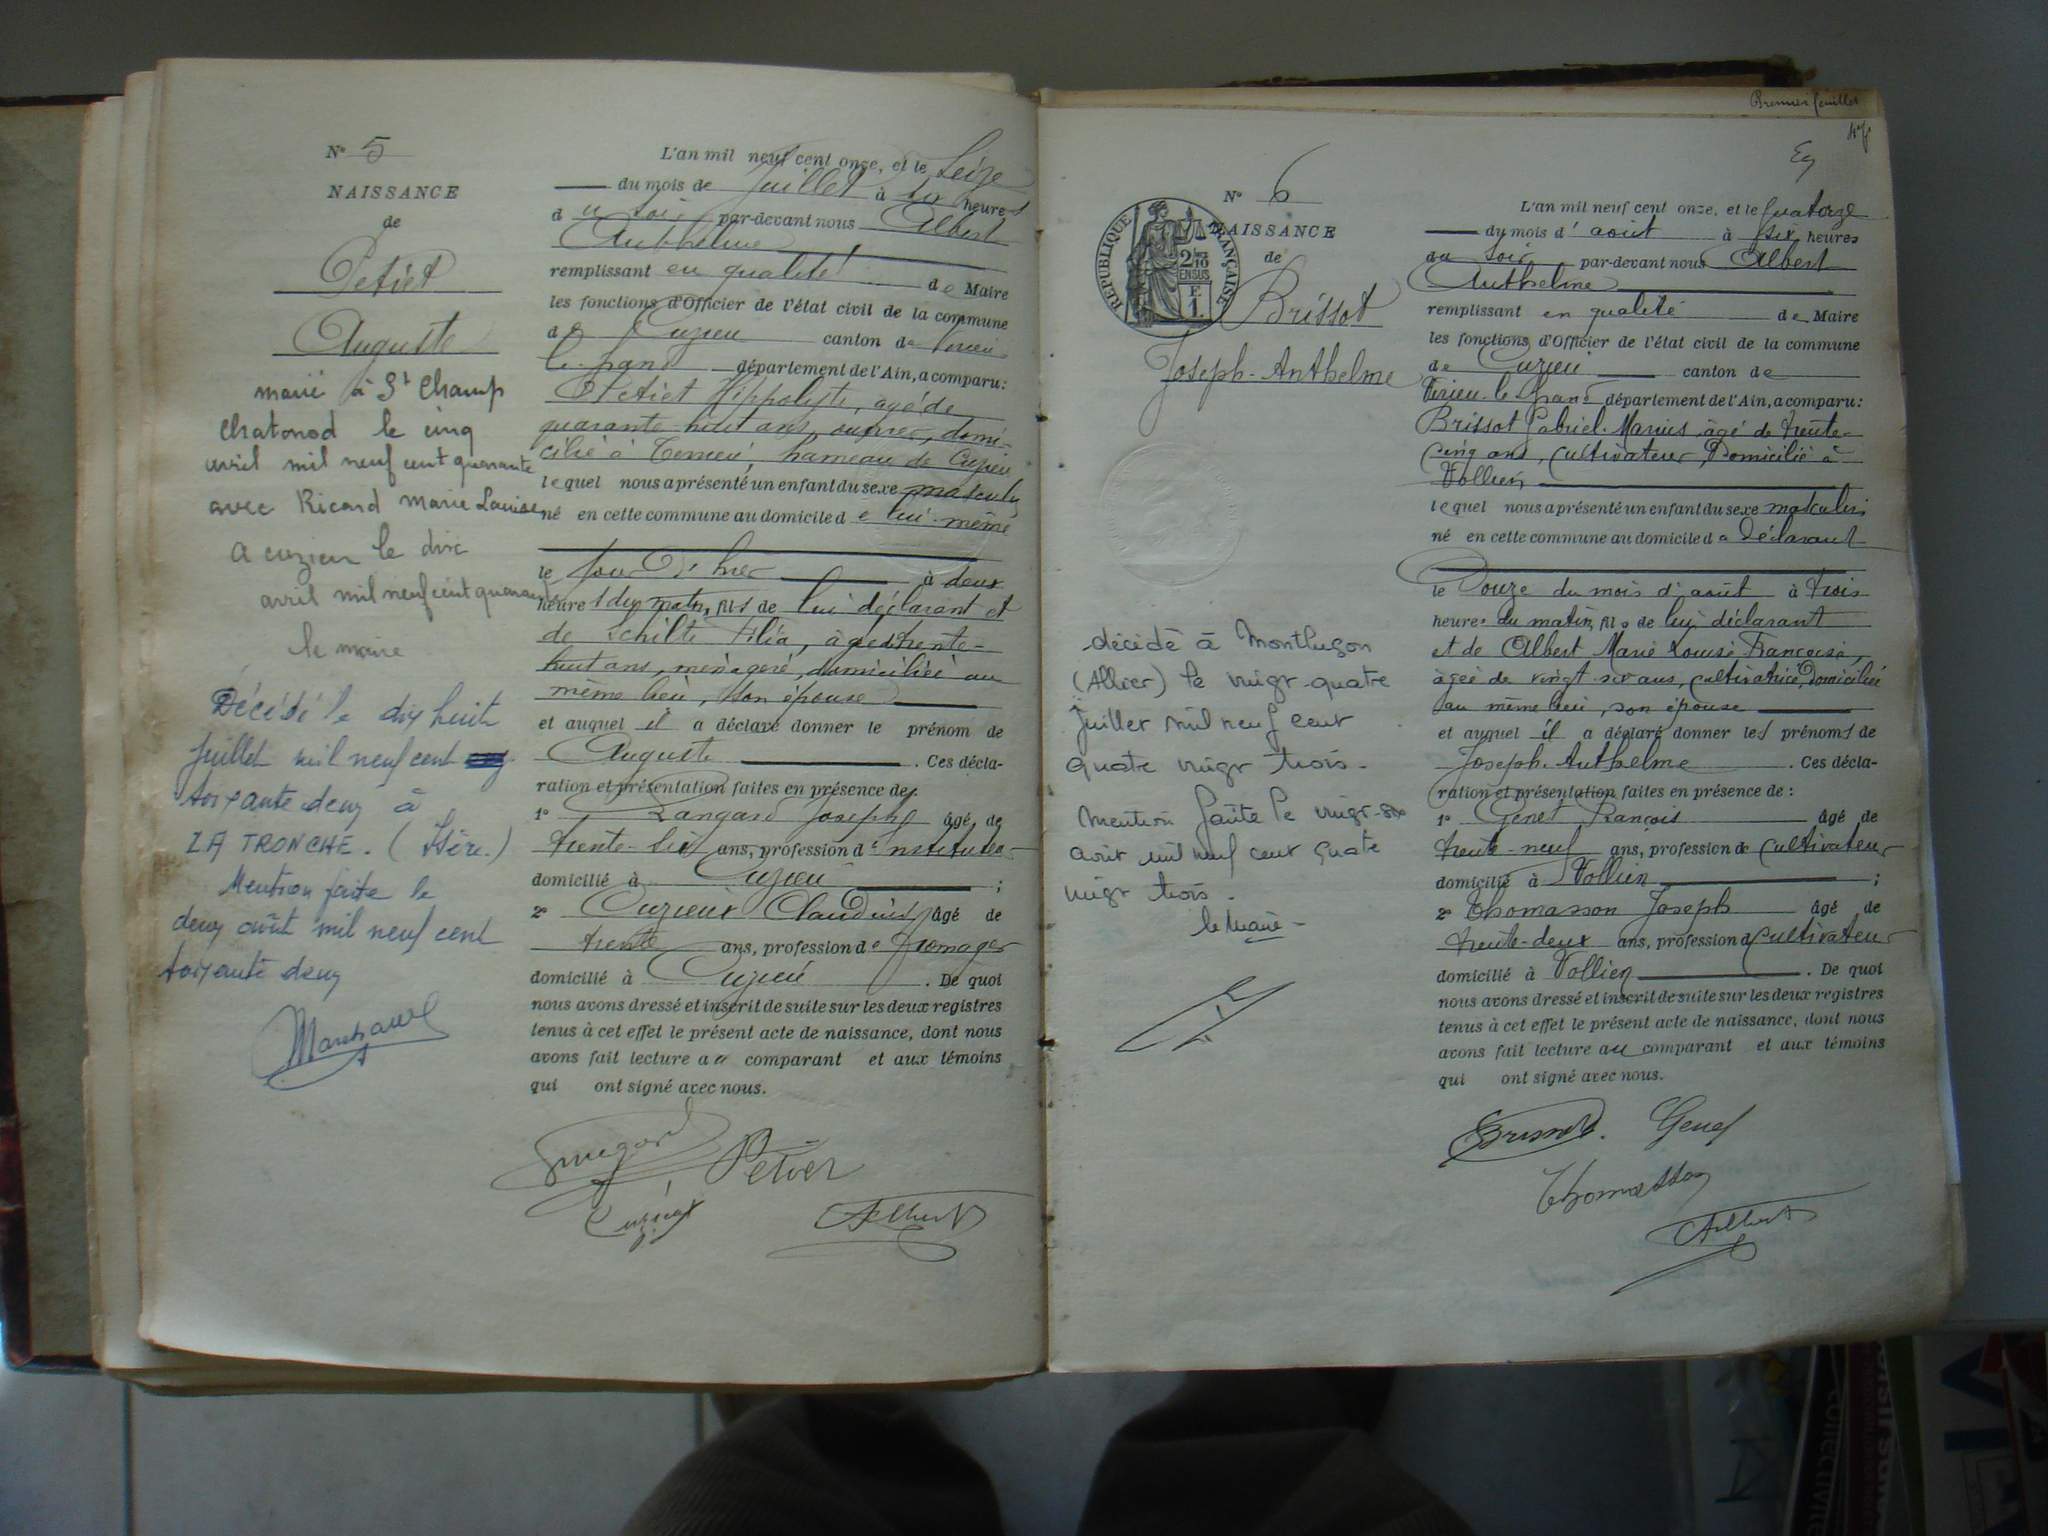 N° 5
NAISSANCE
de
Petiet
Auguste
marié à St Champ
Chatonod le cinq
avril mil neuf cent quarante
avec Ricard Marie Louise
A cuzieu le dix
avril mil neuf cent quarante
le maire
Décédé le dix huit
juillet mil neuf cent
soixante deux à
LA TRONCHE. (Isère.)
Mention faite le
deux août mil neuf cent
soixante deux
L'an mil neuf cent onze, et le Seize
du mois de Juillet à heures
du soir par-devant nous Albert
Anthelme
remplissant en qualité de Maire
les fonctions d'Officier de l'état civil de la commune
de Cuzieu canton de Virieu
le grand département de l'Ain, a comparu:
Petiet Hippolyte, agé de
quarante huit ans, domi-
cilié à hameau de Cuzieu
lequel nous a présenté un enfant du sexe masculin
né en cette commune au domicile de lui-même
le jour d'hier à deux
heures du matin, fils de lui déclarant et
de âgée de trente-
huit ans, ménagère, domiciliée au
même lieu, son épouse
et auquel il a déclaré donner le prénom de
Auguste . Ces décla-
ration et présentation faites en présence de:
1° Joseph âgé de
trente-six ans, profession d'instituteur
domicilié à Cuzieu ;
2° Cuzieux Claudius âgé de
trente ans, profession de fromager
domicilié à Cuzieu . De quoi
nous avons dressé et inscrit de suite sur les deux registres
tenus à cet effet le présent acte de naissance, dont nous
avons fait lecture au comparant et aux témoins
qui ont signé avec nous.
Petiet
Cuzieux
Albert
Premier feuillet
N° 6
NAISSANCE
de
REPUBLIQUE FRANÇAISE
2 10es
EN SUS
F
1.
Brissot
Joseph-Anthelme
décédé à Montluçon
(Allier) le vingt-quatre
juillet mil neuf cent
quatre vingt trois.
Mention faite le vingt-six
août mil neuf cent quatre
vingt trois.
le Maire-
L'an mil neuf cent onze, et le quatorze
du mois d'août à six heures
du soir par-devant nous Albert
Anthelme
remplissant en qualité de Maire
les fonctions d'Officier de l'état civil de la commune
de Cuzieu canton de
Virieu-le-Grand département de l'Ain, a comparu:
Brissot Gabriel-Marius âgé de trente-
cinq ans, cultivateur, Domicilié à
Vollien
lequel nous a présenté un enfant du sexe masculin
né en cette commune au domicile d Déclarant
le Douze du mois d'août à trois
heures du matin, fils de lui déclarant
et de Albert Marie Louise Françoise,
âgée de vingt-six ans, cultivatrice, Domiciliée
au même lieu, son épouse
et auquel il a déclaré donner les prénoms de
Joseph-Anthelme . Ces décla-
ration et présentation faites en présence de :
1° Genet François âgé de
trente-neuf ans, profession de cultivateur
domicilié à Vollien ;
2° Thomasson Joseph âgé de
trente-deux ans, profession d cultivateur
domicilié à Vollien . De quoi
nous avons dressé et inscrit de suite sur les deux registres
tenus à cet effet le présent acte de naissance, dont nous
avons fait lecture au comparant et aux témoins
qui ont signé avec nous.
Brissot. Genet
Thomasson
Albert